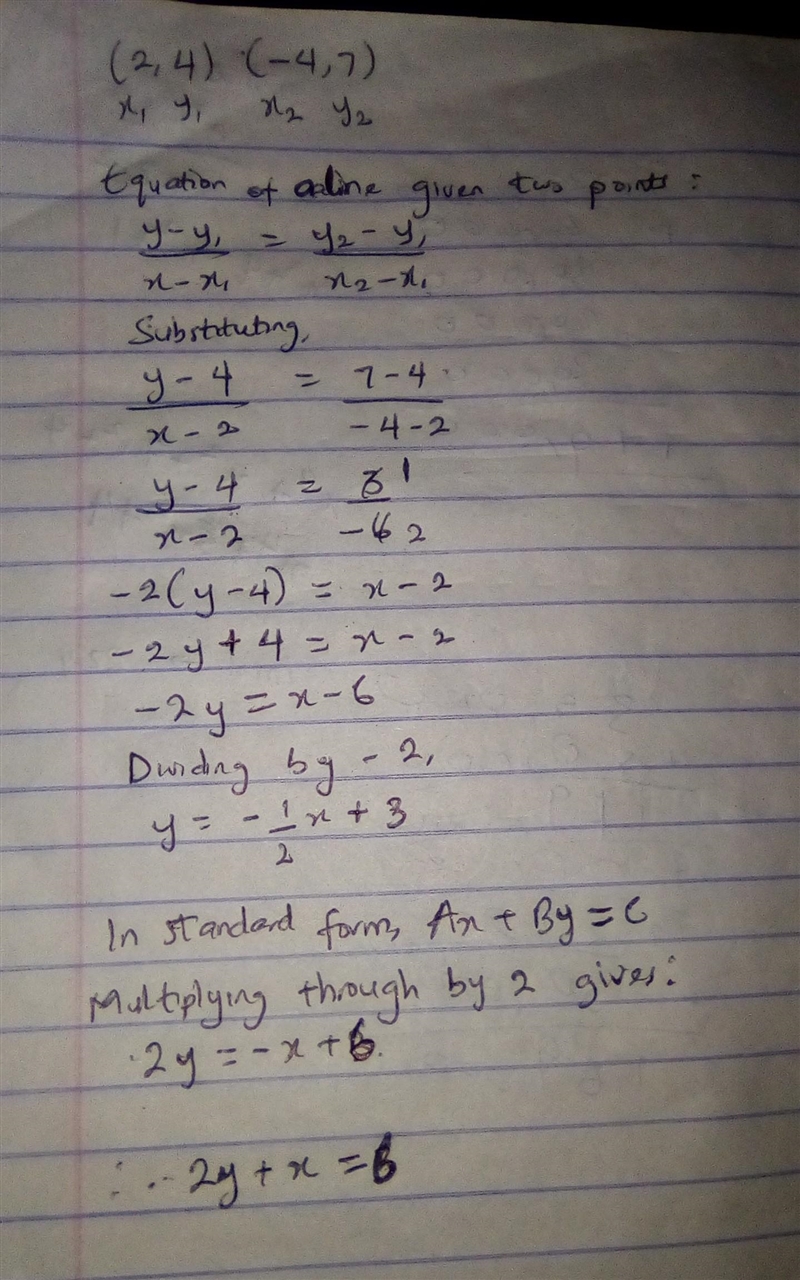 (2,4) (-4,7)
x₁ y₁ x₂ y₂
Equation of a line given two points:
y-y₁/x-x₁ = y₂-y₁/x₂-x₁
Substituting,
y-4/x-2 = 7-4/-4-2
y-4/x-2 = 3 1/-6 2
-2(y-4) = x-2
-2y+4 = x-2
-2y = x-6
Dividing by -2,
y = -1/2x+3
In standard form, Ax+By=C
Multiplying through by 2 gives:
2y = -x+6.
∴ 2y+x=6